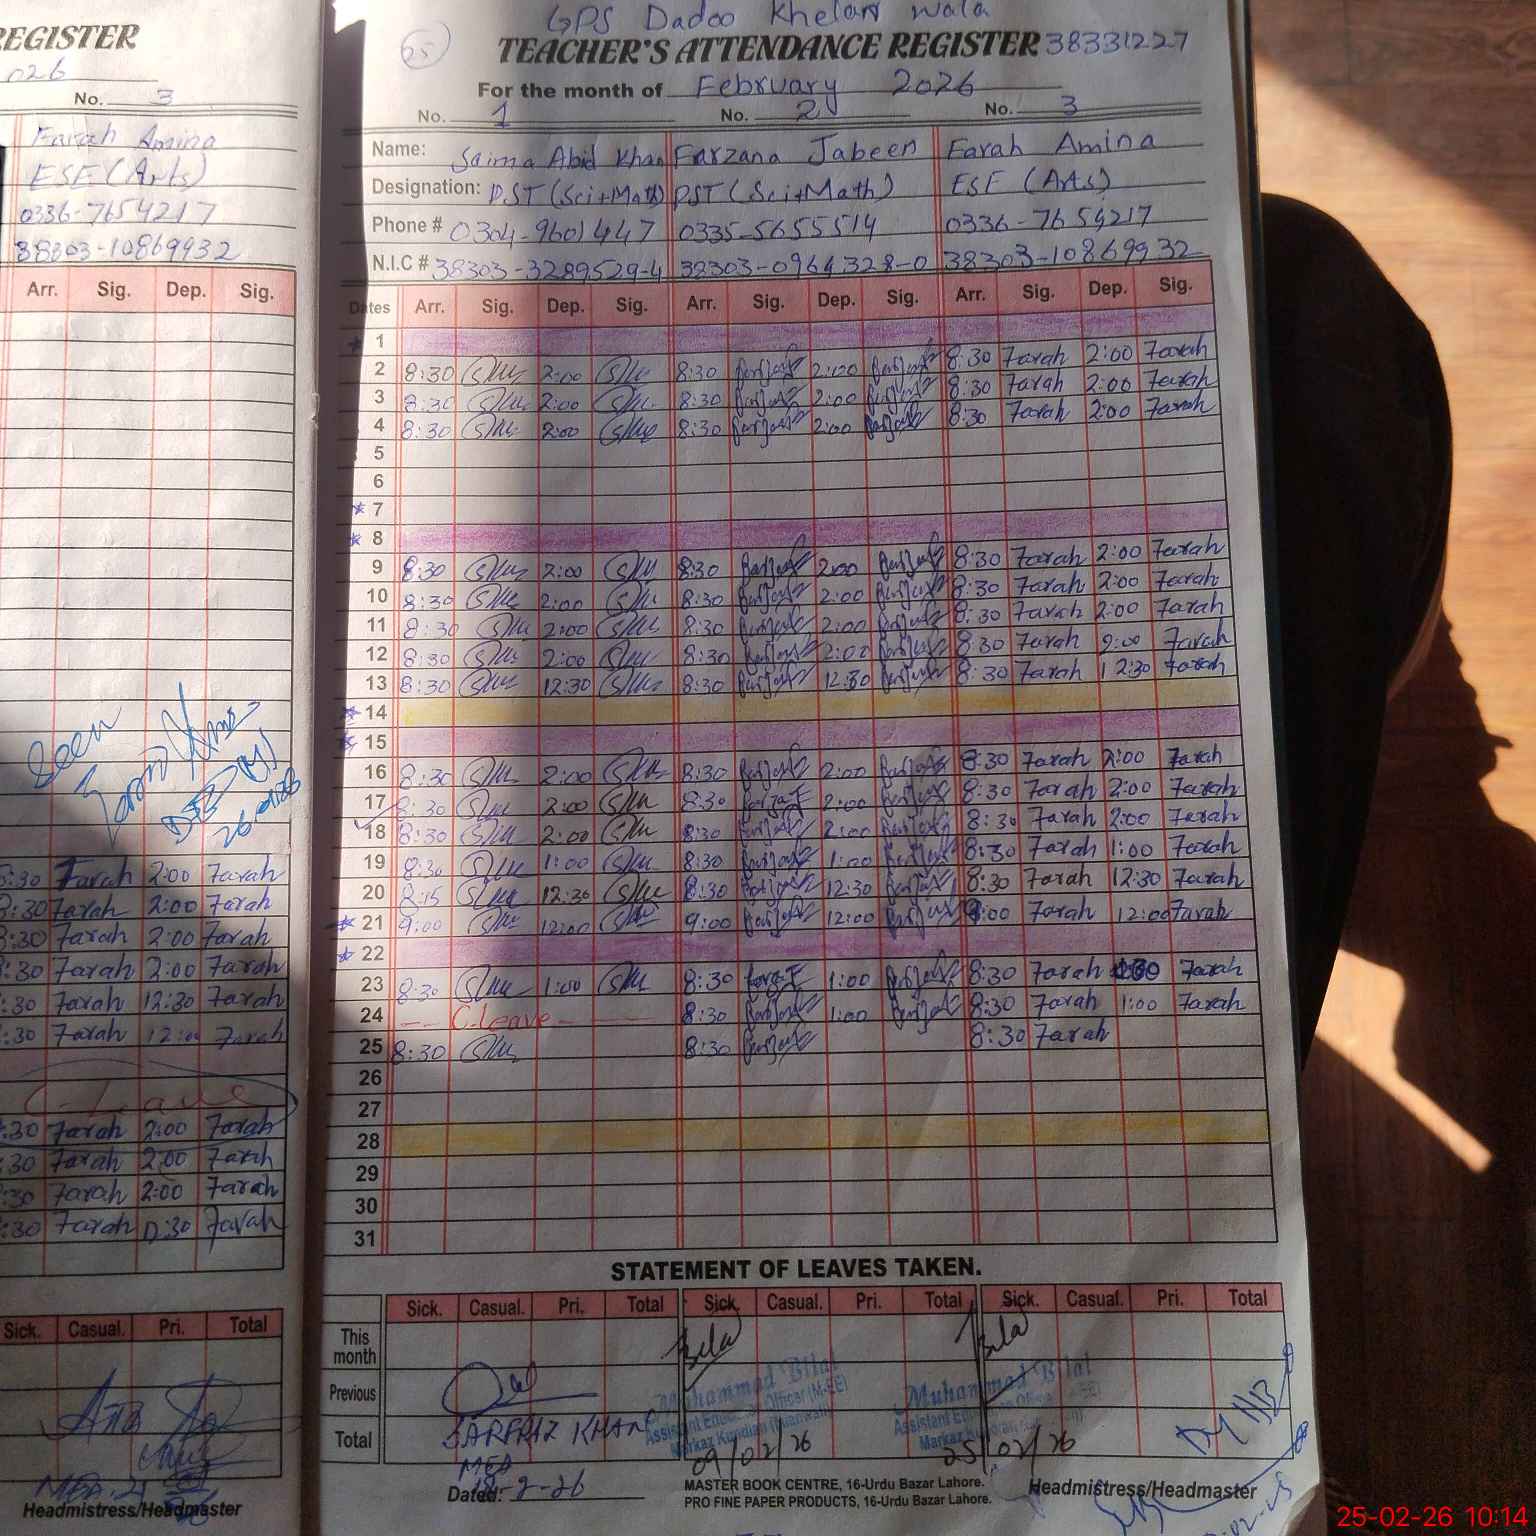 REGISTER
026
No. 3
Farah Amina
ESE (Arts)
0336-7654217
38303-10869932
Arr. Sig. Dep. Sig.
Seen
8:30 Farah 2:00 Farah
8:30 Farah 2:00 Farah
8:30 Farah 2:00 Farah
8:30 Farah 2:00 Farah
:30 Farah 12:30 Farah
:30 Farah 12:00 Farah
C-Leave
:30 Farah 2:00 Farah
:30 Farah 2:00 Farah
:30 Farah 2:00 Farah
:30 Farah Farah
Sick. Casual. Pri. Total
Headmistress/Headmaster
GPS Dadoo Khelan wala
25
TEACHER'S ATTENDANCE REGISTER 38331227
For the month of February 2026
No. 1 No. 2 No. 3
Name: Saima Abid Khan Farzana Jabeen Farah Amina
Designation: PST (Sci+Math) PST (Sci+Math) ESE (Arts)
Phone # 0304-9601447 0335-5655514 0336-7654217
N.I.C # 38303-3289529-4 38303-0964328-0 38303-10869932
Dates Arr. Sig. Dep. Sig. Arr. Sig. Dep. Sig. Arr. Sig. Dep. Sig.
1
2 8:30 2:00 8:30 2:00 8:30 Farah 2:00 Farah
3 8:30 2:00 8:30 2:00 8:30 Farah 2:00 Farah
4 8:30 2:00 8:30 2:00 8:30 Farah 2:00 Farah
5
6
7
8
9 8:30 2:00 8:30 2:00 8:30 Farah 2:00 Farah
10 8:30 2:00 8:30 2:00 8:30 Farah 2:00 Farah
11 8:30 2:00 8:30 2:00 8:30 Farah 2:00 Farah
12 8:30 2:00 8:30 2:00 8:30 Farah 2:00 Farah
13 8:30 12:30 8:30 12:30 8:30 Farah 12:30 Farah
14
15
16 8:30 2:00 8:30 2:00 8:30 Farah 2:00 Farah
17 8:30 2:00 8:30 2:00 8:30 Farah 2:00 Farah
18 8:30 2:00 8:30 2:00 8:30 Farah 2:00 Farah
19 8:30 1:00 8:30 1:00 8:30 Farah 1:00 Farah
20 8:15 12:30 8:30 12:30 8:30 Farah 12:30 Farah
21 9:00 12:00 9:00 12:00 9:00 Farah 12:00 Farah
22
23 8:30 1:00 8:30 1:00 8:30 Farah Farah
24 C.Leave 8:30 1:00 8:30 Farah 1:00 Farah
25 8:30 8:30 8:30 Farah
26
27
28
29
30
31
STATEMENT OF LEAVES TAKEN.
Sick. Casual. Pri. Total Sick. Casual. Pri. Total Sick. Casual. Pri. Total
This month
Previous
Total
SARFRAZ KHAN
Muhammad Bilal
Assistant Education Officer (M-EE)
Markaz Kundian (Mianwali)
09/02/26
Muhammad Bilal
25/02/26
Dated: 18-2-26
MASTER BOOK CENTRE, 16-Urdu Bazar Lahore.
PRO FINE PAPER PRODUCTS, 16-Urdu Bazar Lahore.
Headmistress/Headmaster
25-02-26 10:14